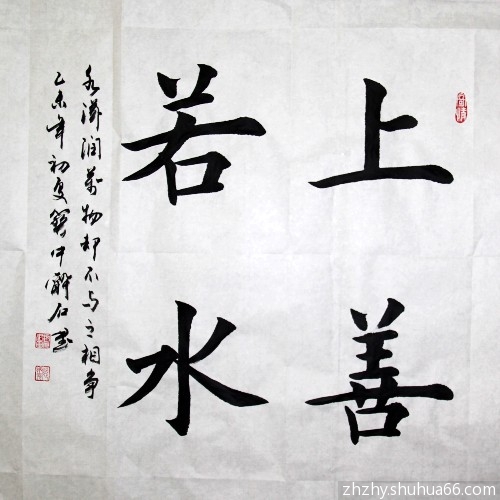 上善
若水
水滋润万物却不与之相争
乙未年初夏 中 石书
zhzhyshuhua66.com